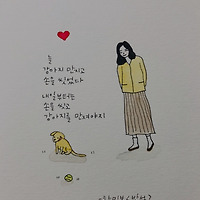 늘
강아지 만지고
손을 씻었다
내일부터는
손을 씻고
강아지를 만져야지